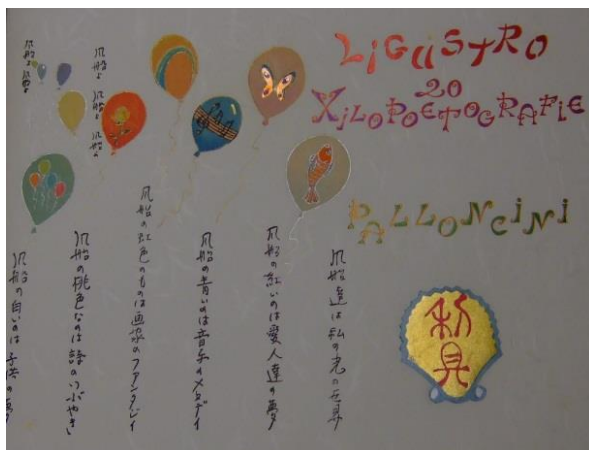 LiGuSTRO
20
XiLOPOETOGRAFiE
PALLONCiNi
風船達は私の光の世界
風船の紅いのは愛人達の夢
風船の青いのは音楽のメロディ
風船の虹色のものは画家のファンタジイ
風船の桃色なのは詩のつぶやき
風船の白いのは子供の夢
風船よ
風船よ
風船よ